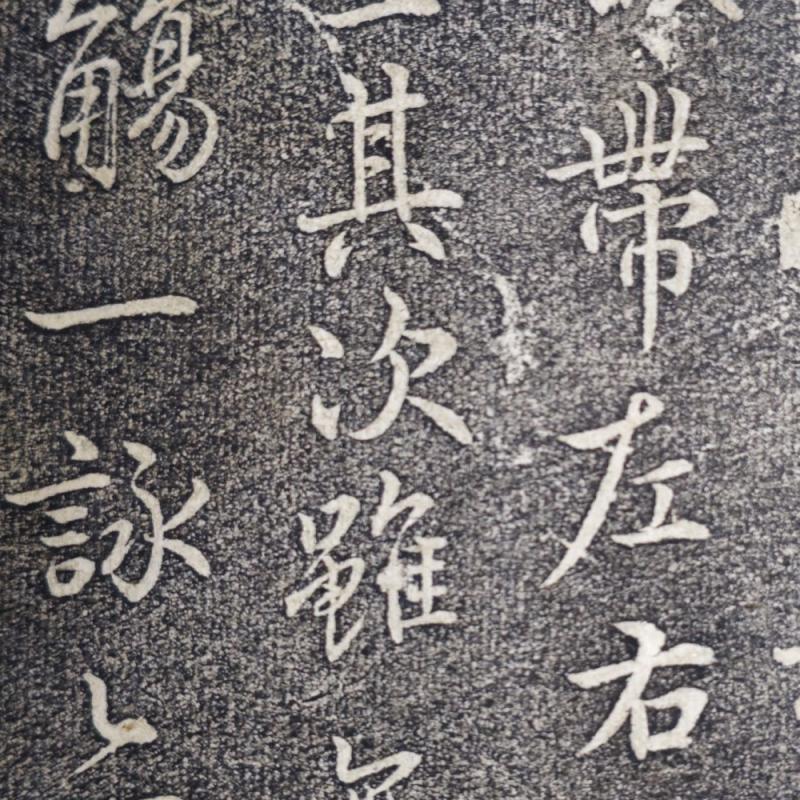 帶左右
其次雖
觴一詠